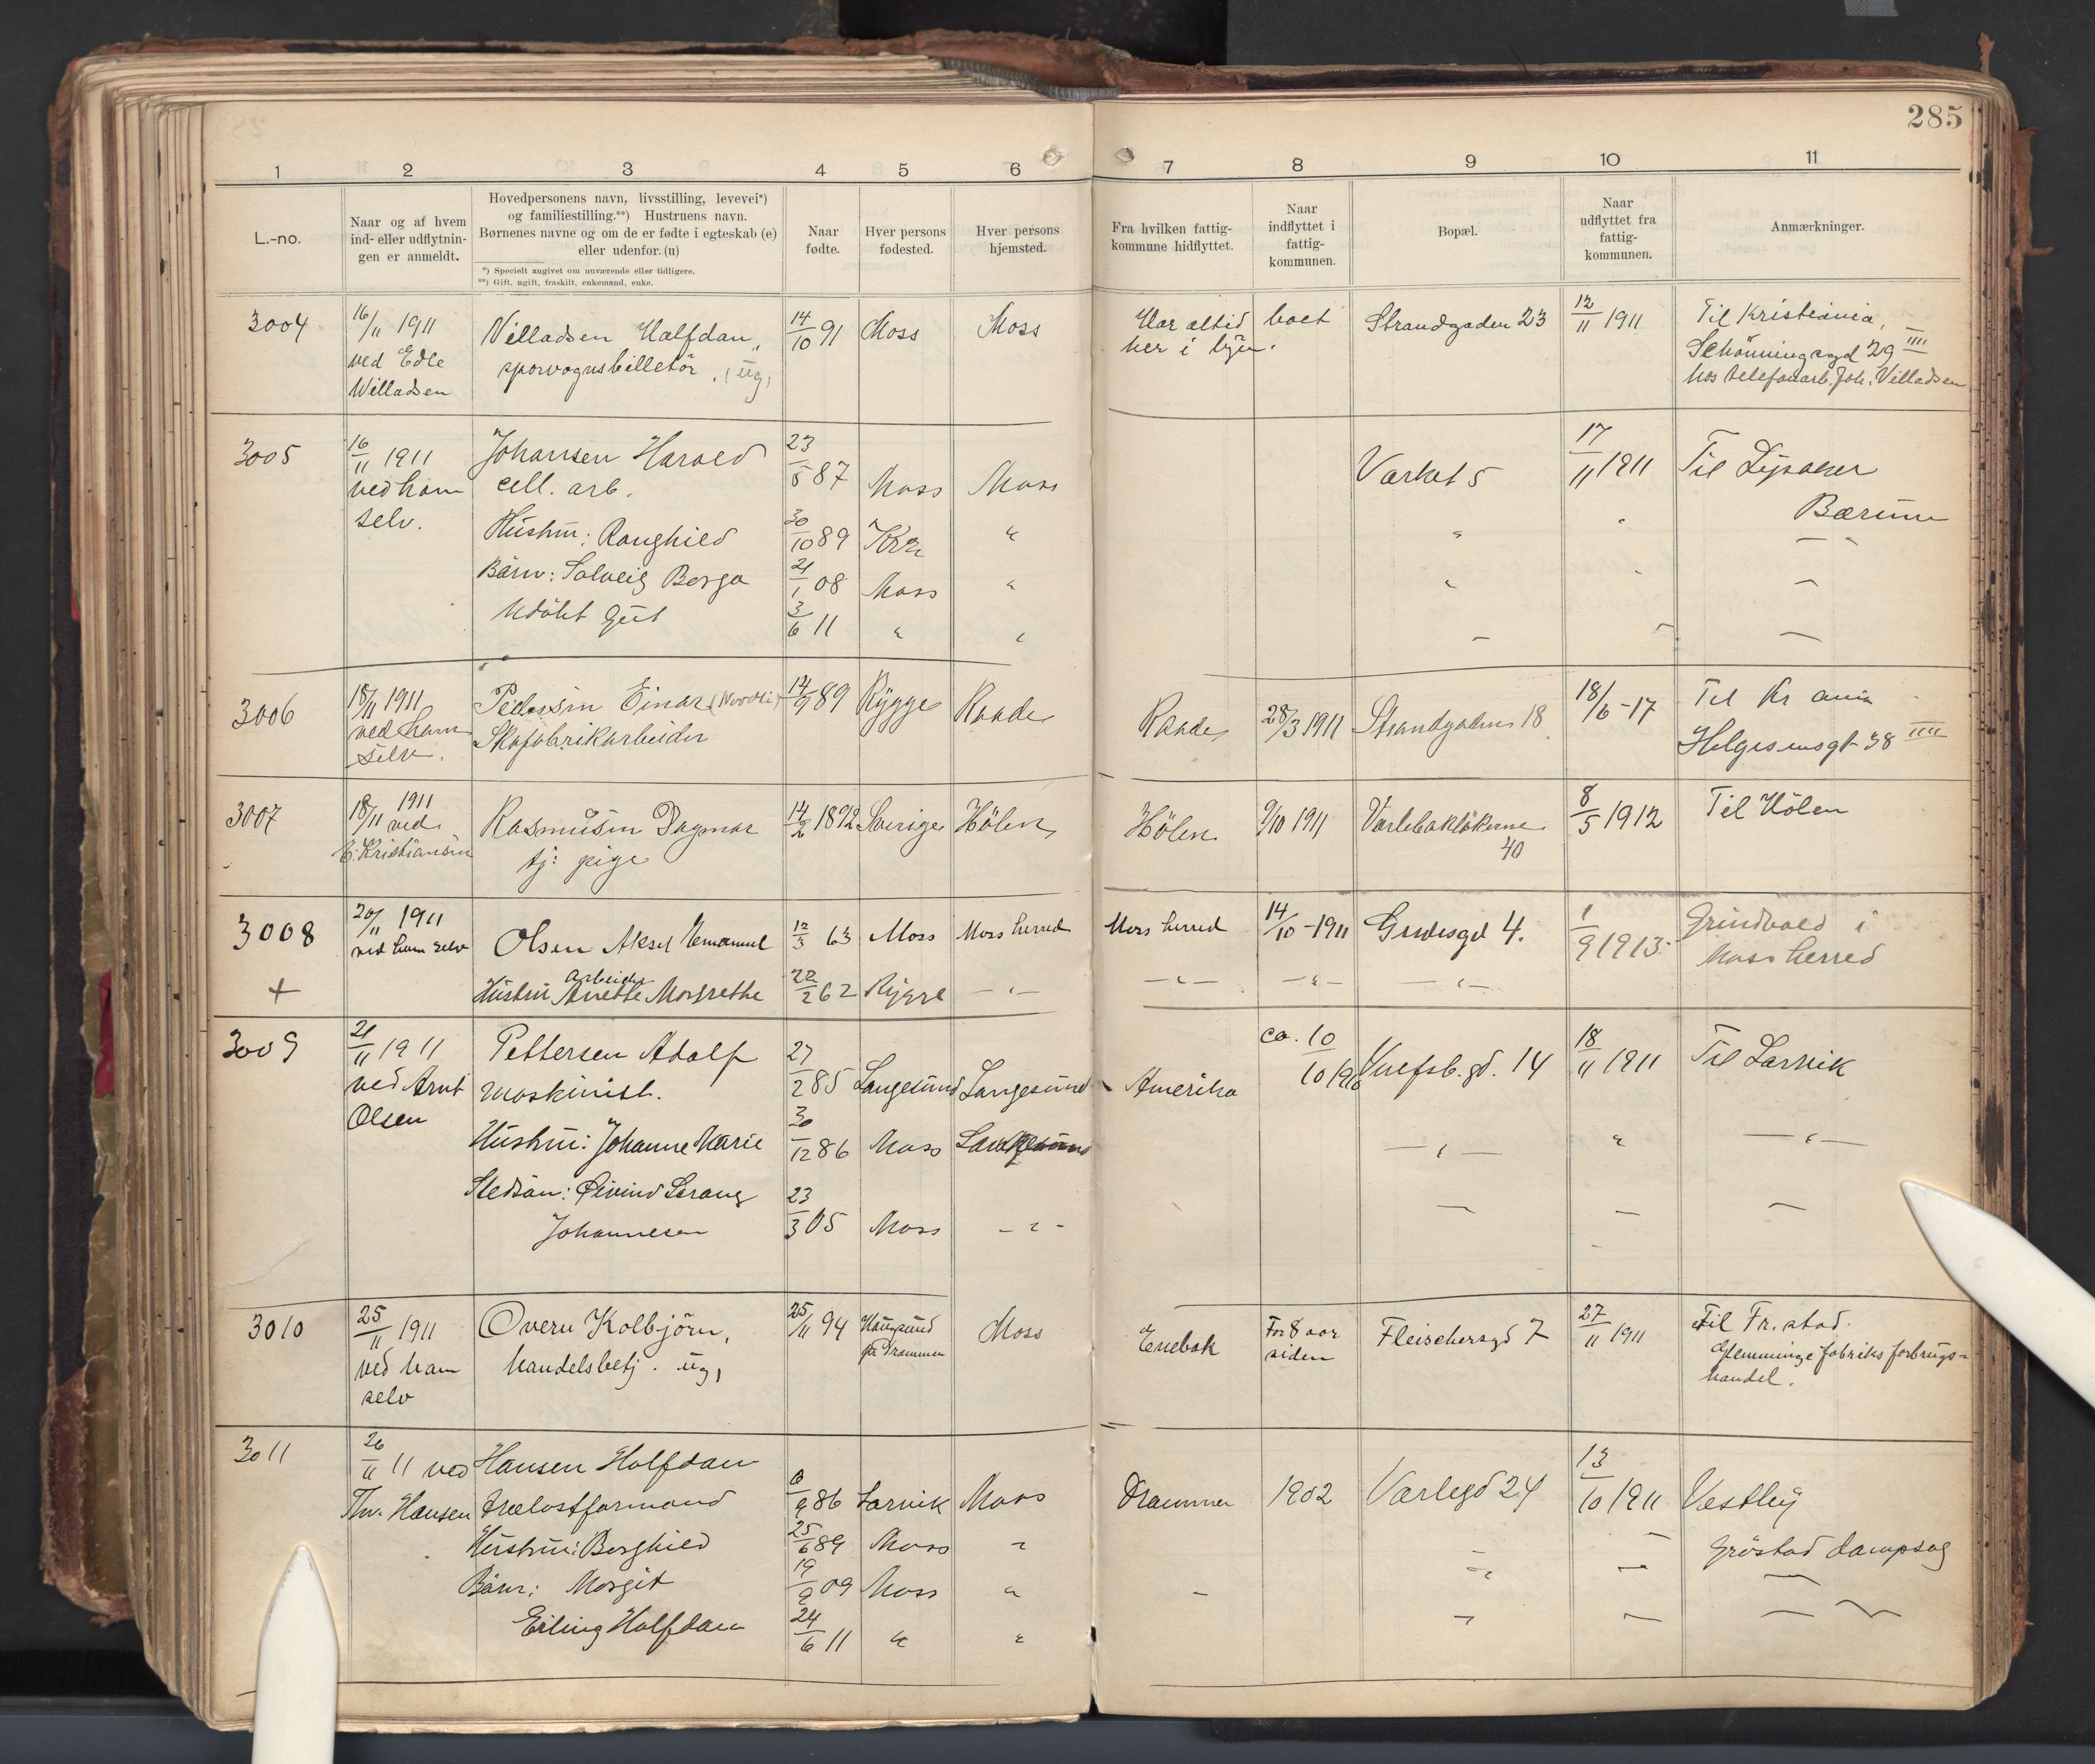 285
1 2 3 4 5 6 7 8 9 10 11
L.-no.
Naar og af hvem
ind- eller udflytnin-
gen er anmeldt.
Hovedpersonens navn, livsstilling, levevei*)
og familiestilling.**) Hustruens navn.
Børnenes navne og om de er fødte i egteskab (e)
eller udenfor. (u)
*) Specielt angivet om nuværende eller tidligere.
**) Gift, ugift, fraskilt, enkemand, enke.
Naar
fødte.
Hver persons
fødested.
Hver persons
hjemsted.
Fra hvilken fattig-
kommune hidflyttet.
Naar
indflyttet i
fattig-
kommunen.
Bopæl.
Naar
udflyttet fra
fattig-
kommunen.
Anmærkninger.
3004
16/11 1911
ved Edle
Willadsen
Villadsen Halfdan,
sporvognsbilletør, (ug,
14/10 91 Moss Moss
Har altid boet
her i byen.
Strandgaden 23
12/11 1911
Til Kristiania,
Schønningsgd 29 IIII
hos telefonarb. Joh. Villadsen
3005
16/11 1911
ved ham
selv.
Johansen Harald
cell. arb.
23/5 87 Moss Moss
Værket 5
17/11 1911
Til Lysaker
Bærum
Hustru: Ranghild 30/10 89 Kra "
Børn: Solveig Borga 21/1 08 Moss "
Udøbt gut 3/6 11 " "
3006
18/11 1911
ved ham
selv.
Pedersen Einar
Skofabrikarbeider
14/9 89 Rygge Raade
Raade 28/3 1911 Strandgaden 18
18/6-17
Til Kr ania
Helgesensgt 38 IIII
3007
18/11 1911
ved
E. Kristiansen
Rasmusen Dagmar
tj: pige
14/2 1892 Sverige Hölen
Hölen 9/10 1911 Varlebakløkkerne
40
8/5 1912
Til Hölen
3008
+
20/11 1911
ved ham selv
Olsen Aksel Emanuel
arbeider
12/3 63 Moss Moss herred
Moss herred 14/10-1911 Gudesgd 4.
1/9 1913
Grindvold i
Moss herred
Hustru Anette Margrethe 22/2 62 Rygge — " —
— " — — " — — " —
3009
21/11 1911
ved Arnt
Olsen
Pettersen Adolf
maskinist.
27/2 85 Langesund Langesund
Amerika
ca. 10/10 1910
14
18/11 1911
Til Larvik
Hustru: Johanne Marie 30/12 86 Moss
— " — " — " —
Stedsøn: Øivind
Johannesen 23/3 05 Moss — " —
3010
25/11 1911
ved ham
selv
Overn Kolbjörn,
handelsbetj. ug,
25/11 94 Hougsund
pr Drammen
Moss
Enebak
For 8 aar
siden
Fleischersgd 7
27/11 1911
Til Fr.stad.
Glemminge fabriks forbrugs=
handel.
3011
26/11 11 ved
Thv. Hansen
Hansen Halfdan
trælastformand
6/9 86 Larvik Moss
Drammen 1902 Varlegd 24
13/10 1911
Vestby
Grøstad dampsag
Hustru: Borghild 25/6 89 Moss "
Børn: Margit 19/9 09 Moss "
Erling Halfdan 24/6 11 " "